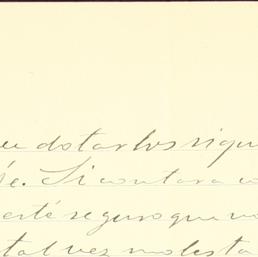 dotarlos siqu
é. Si contara co
esté seguro que no
tal vez molesta